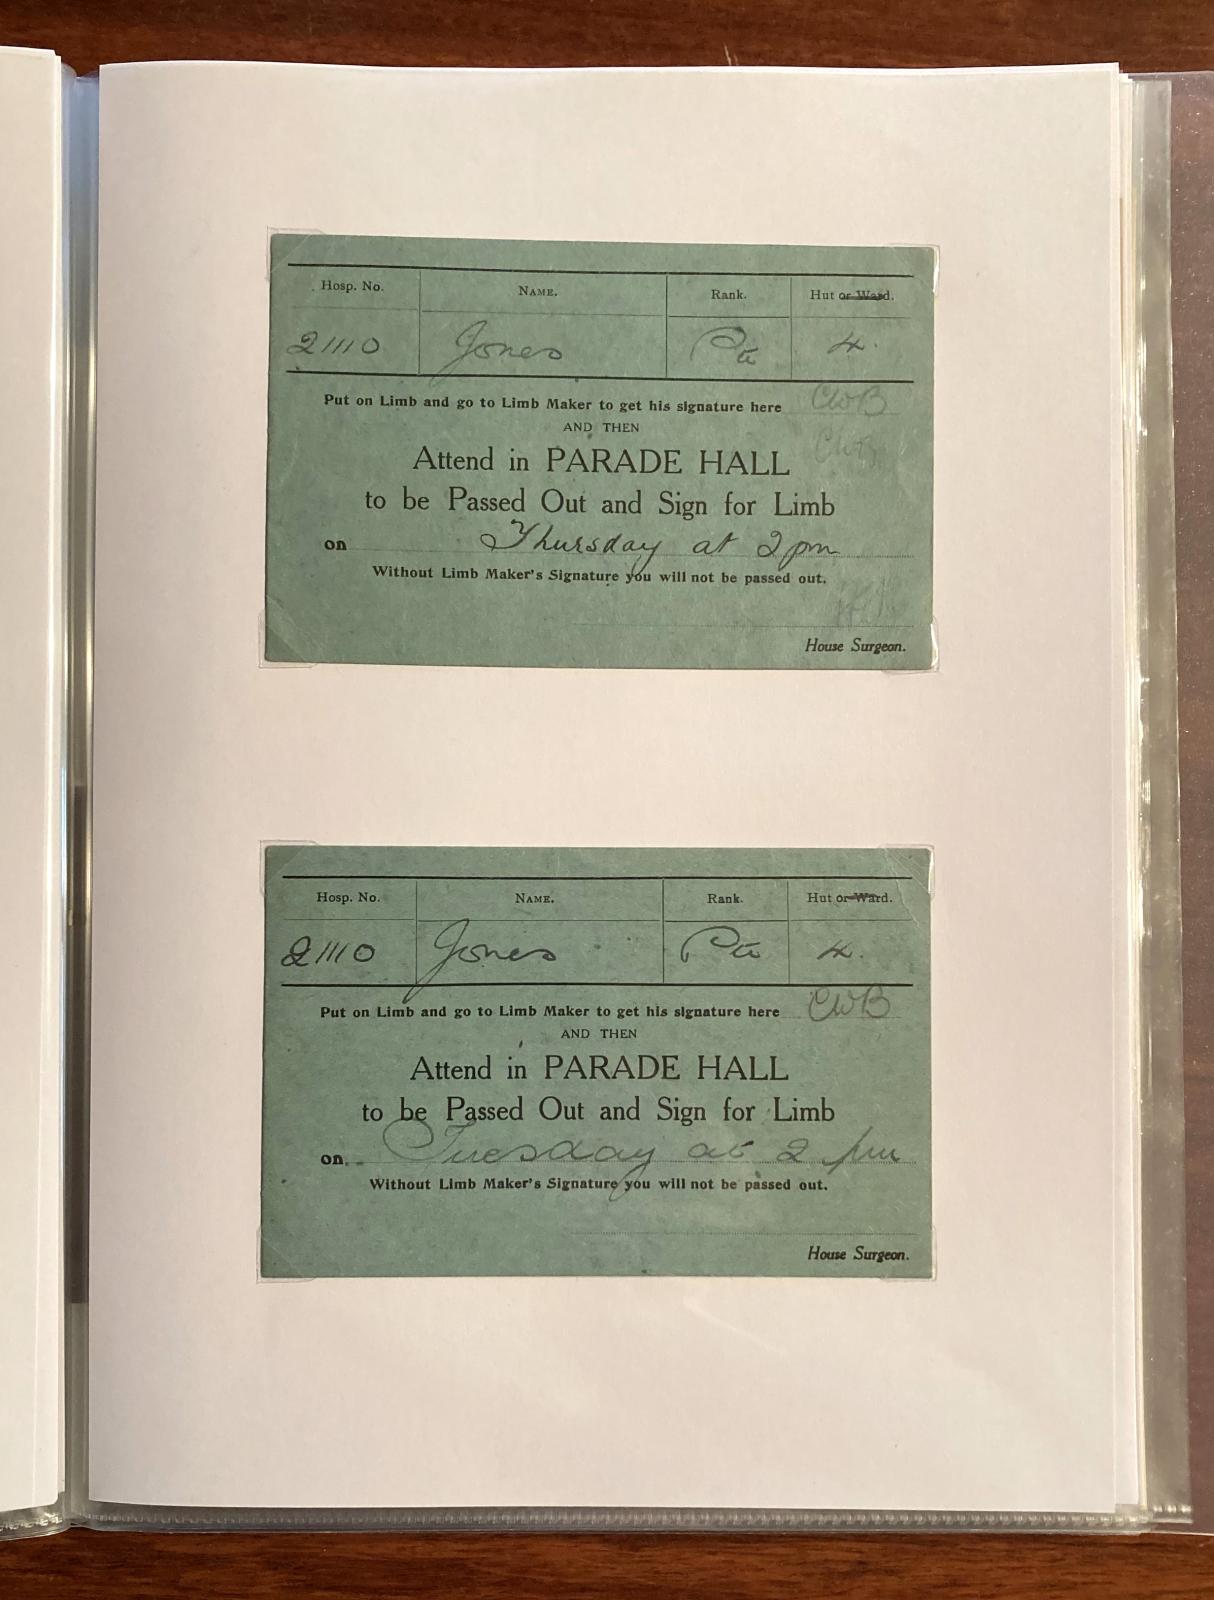 Hosp. No. NAME. Rank. Hut or Ward.
21110 Jones Pte 4.
Put on Limb and go to Limb Maker to get his signature here CWB
AND THEN CWB
Attend in PARADE HALL
to be Passed Out and Sign for Limb
on Thursday at 2 pm
Without Limb Maker's Signature you will not be passed out.
House Surgeon.
Hosp. No. NAME. Rank. Hut or Ward.
21110 Jones Pte 4.
Put on Limb and go to Limb Maker to get his signature here CWB
AND THEN
Attend in PARADE HALL
to be Passed Out and Sign for Limb
on Tuesday at 2 pm
Without Limb Maker's Signature you will not be passed out.
House Surgeon.